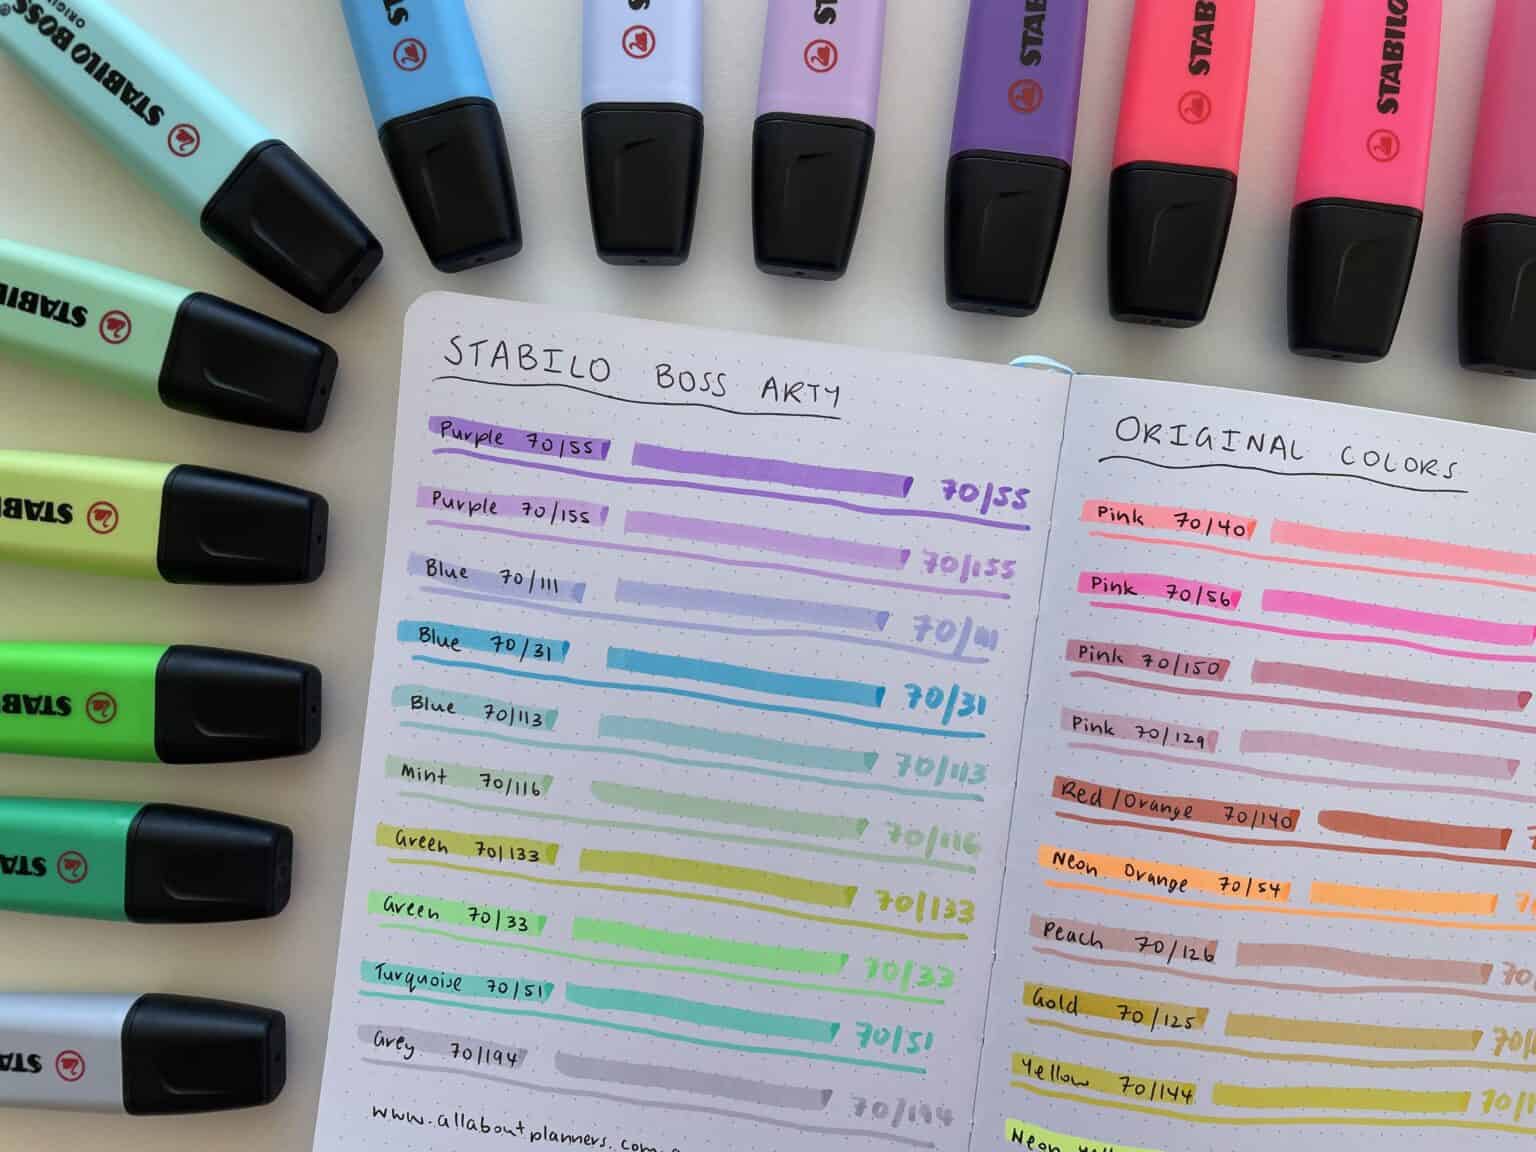 STABILO BOSS®
ORIGI
ST
ST
STAB
STAB
STABILO
STABIL
STABI
STAB
STA
STA
STABILO BOSS ARTY
Purple 70/55 70/55
Purple 70/155 70/155
Blue 70/111 70/111
Blue 70/31 70/31
Blue 70/113 70/113
Mint 70/116 70/116
Green 70/133 70/133
Green 70/33 70/33
Turquoise 70/51 70/51
Grey 70/194 70/194
www.allaboutplanners.com.
ORIGINAL COLORS
Pink 70/40
Pink 70/56
Pink 70/150
Pink 70/129
Red/Orange 70/140
Neon Orange 70/54
Peach 70/126 70
Gold 70/125 70/
Yellow 70/144 70/1
Neon